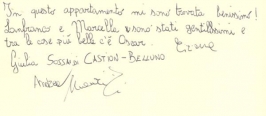 In questo appartamento mi sono trovata benissimo!
Lanfranco e Marcella sono stati gentilissimi e
tra le cose più belle c'è Oscar.
Giulia CASTION - BELLUNO